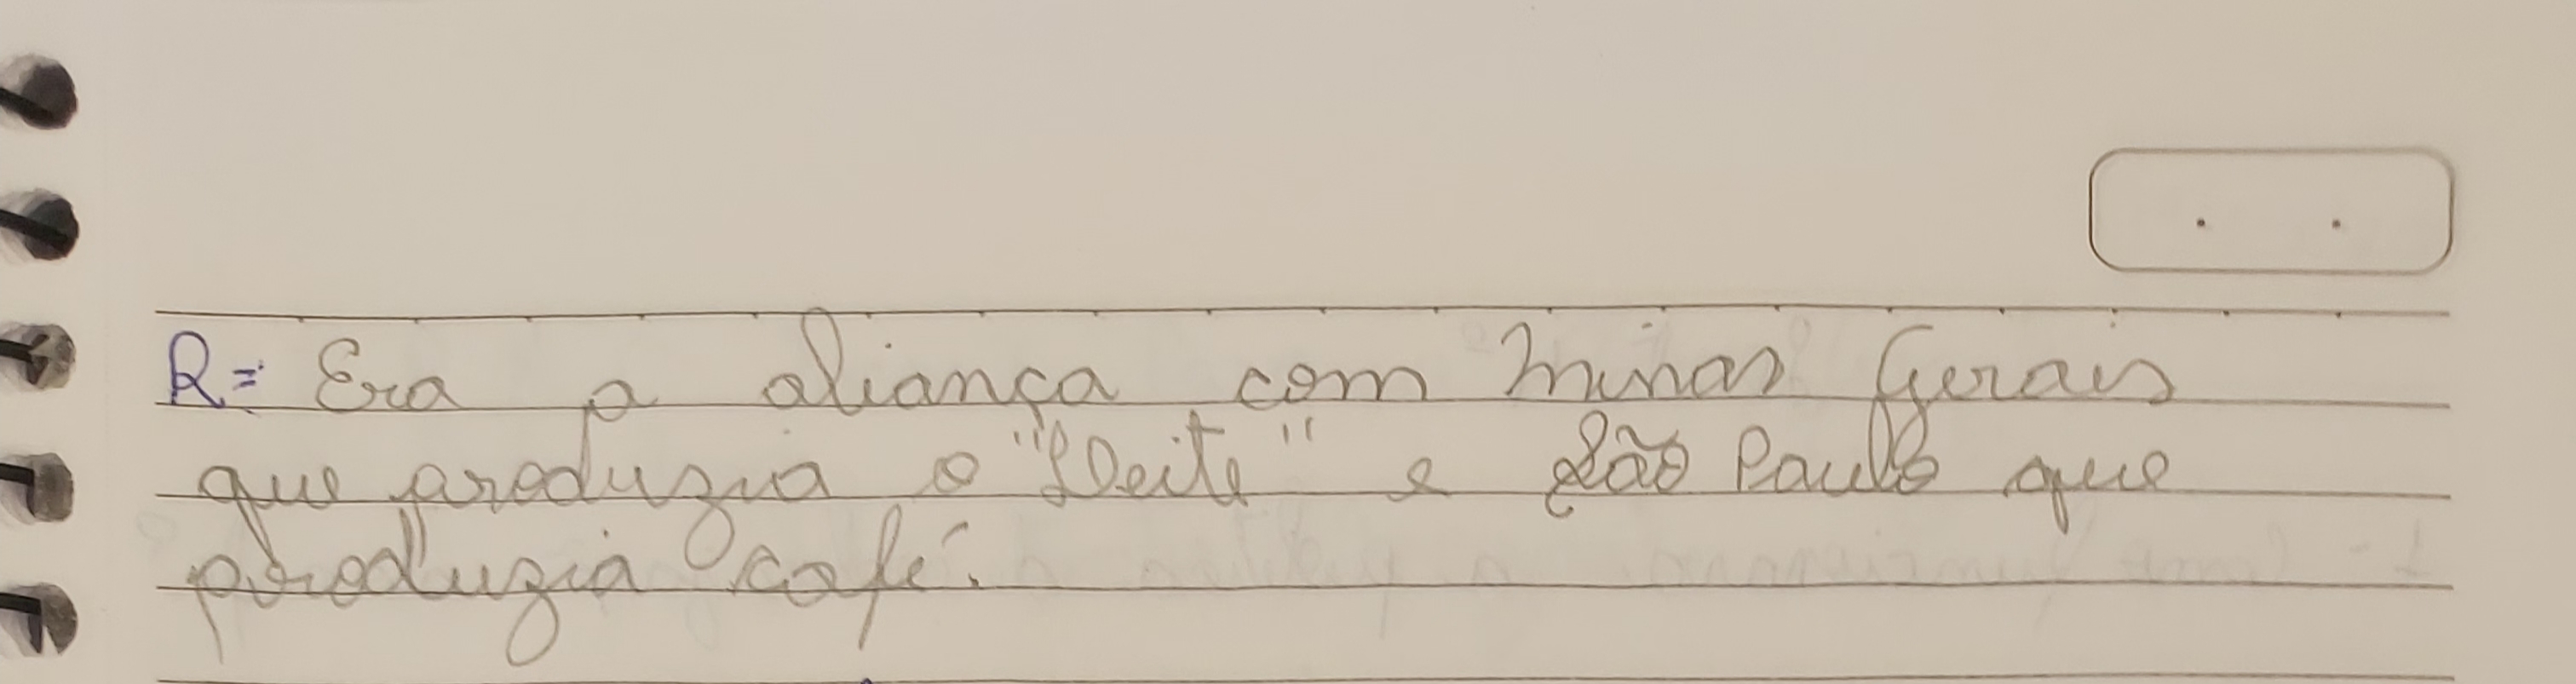 R= Era a aliança com Minas Gerais
que produzia o "Leite" e São Paulo que
produzia café.